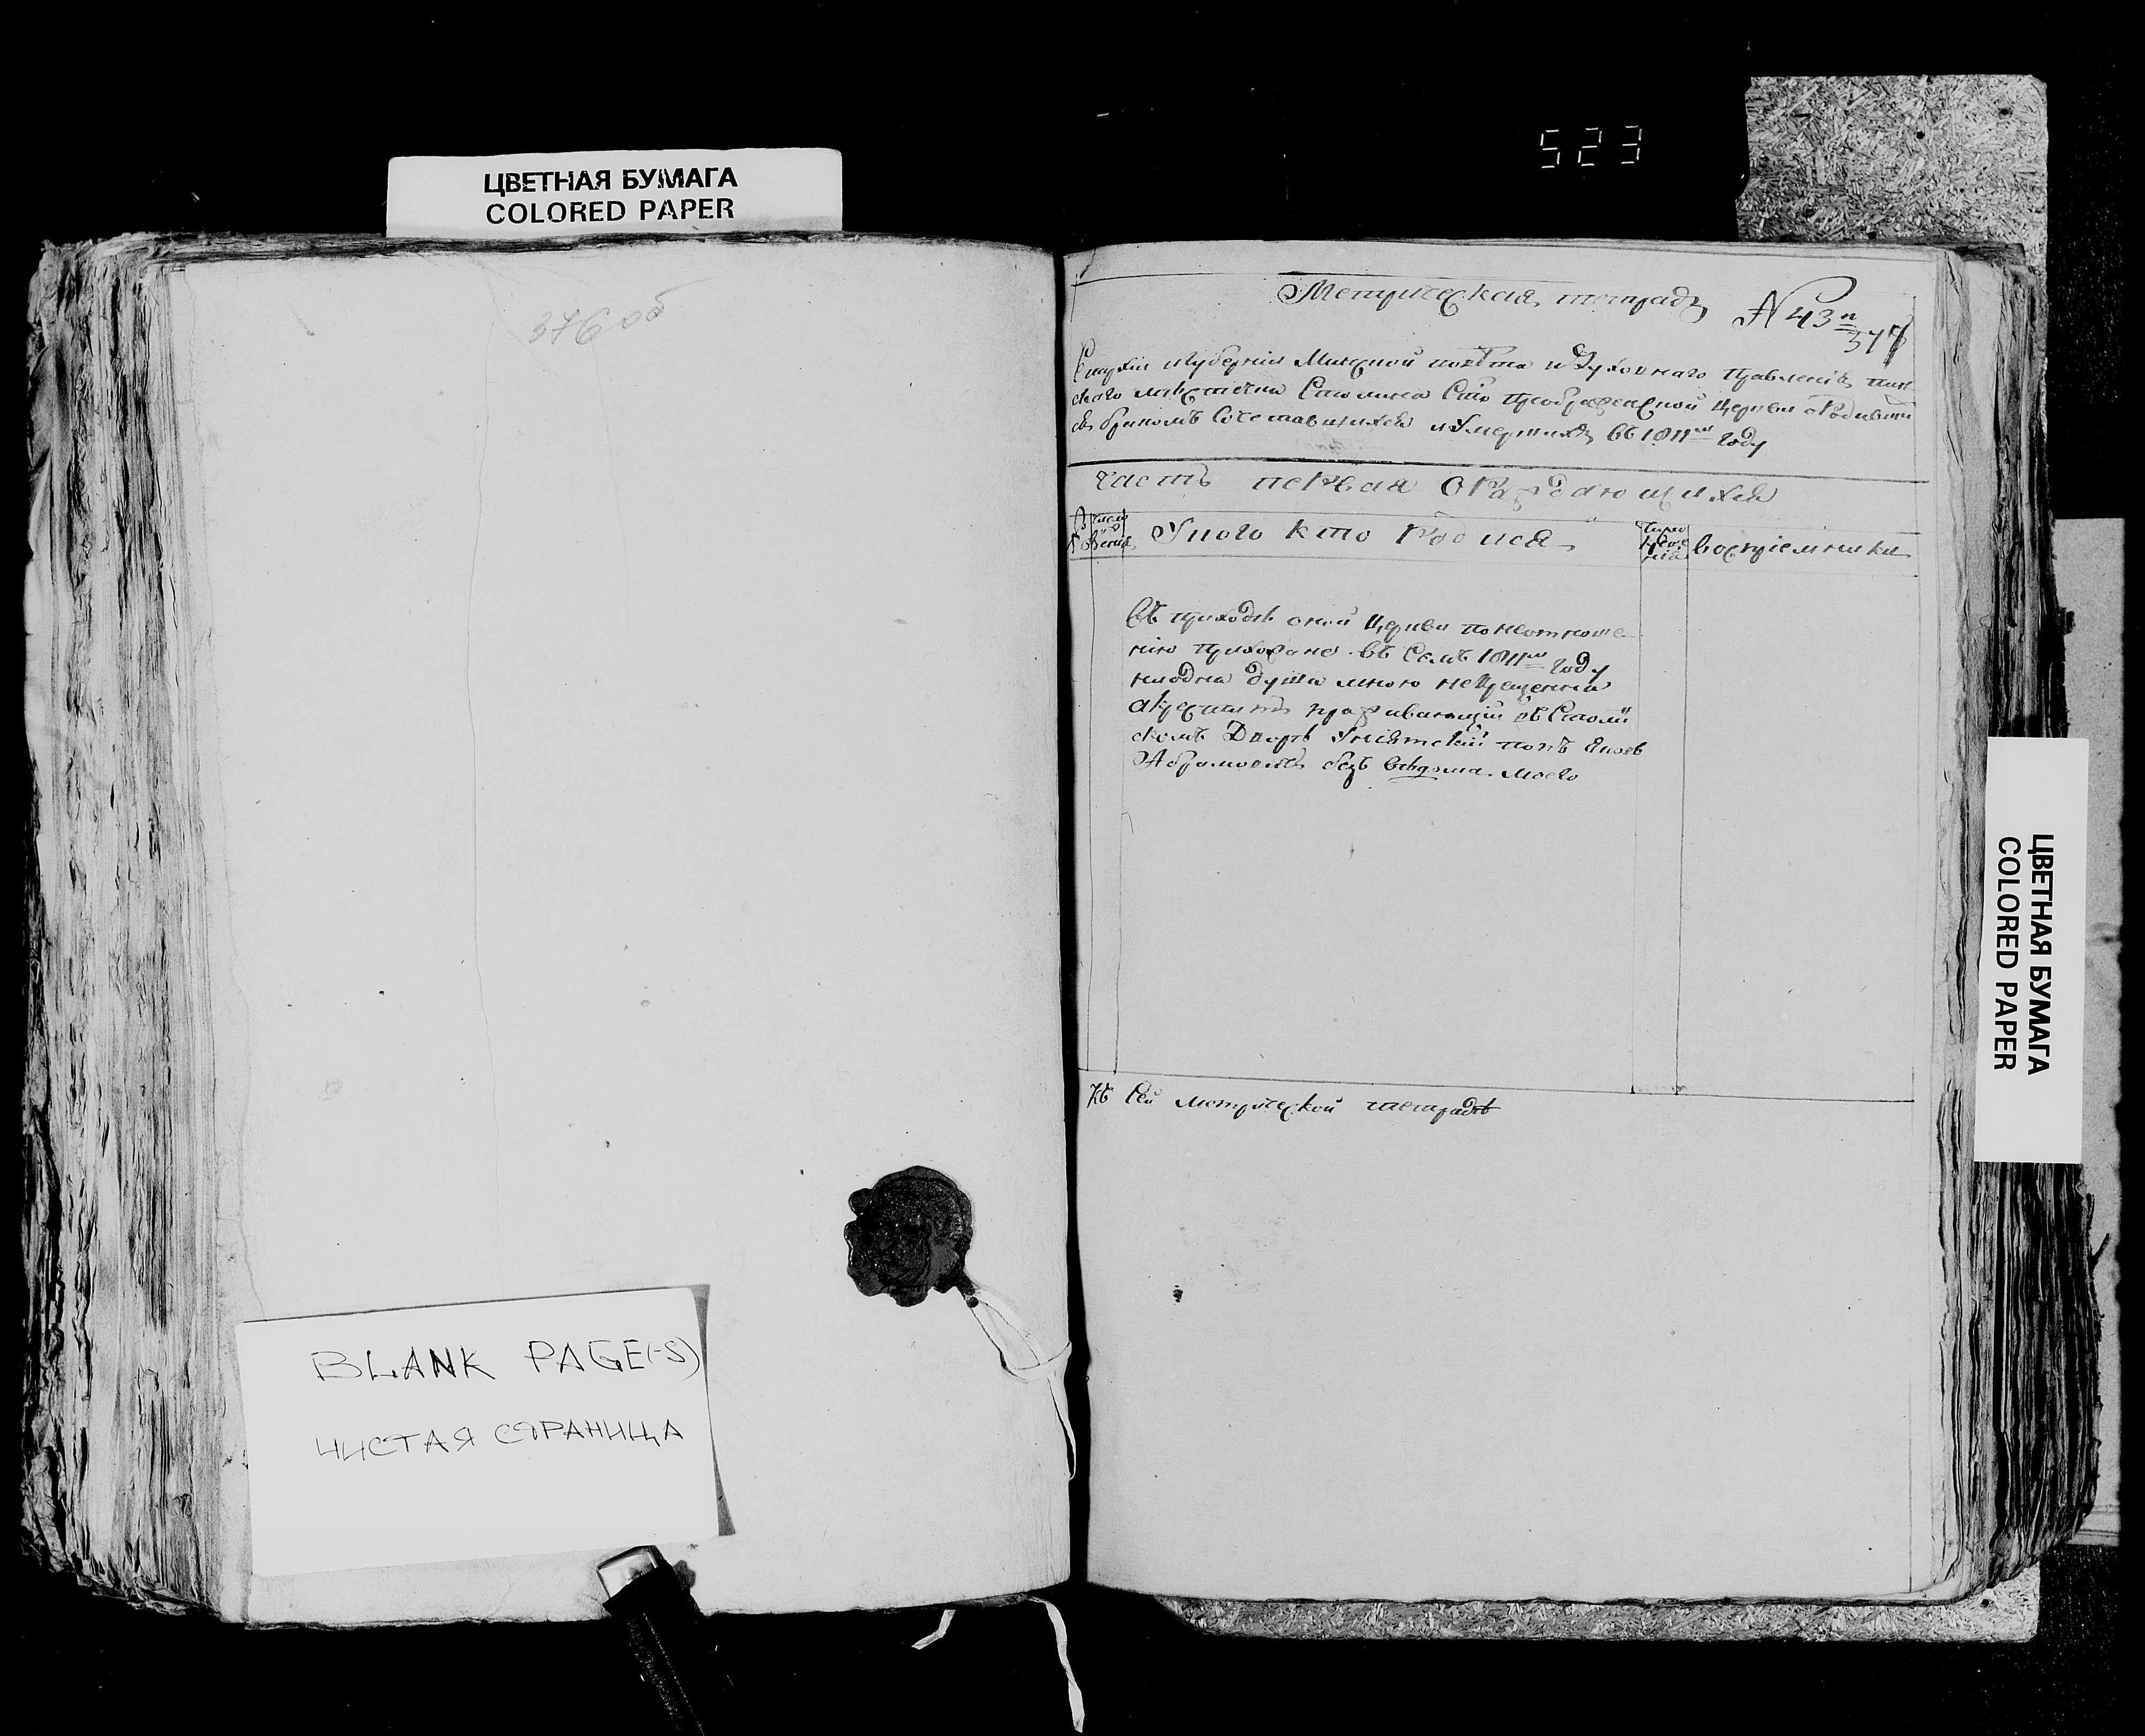 523
ЦВЕТНАЯ БУМАГА
COLORED PAPER
376 об
Метрическая тетрадь
N 43й
377
Епархіи и губерніи Минской повѣта и духовнаго правленія пин
скаго мѣстечка Столина Сто преображенской Церкви о Родивши
ся бракомъ Сочетавшихся и Умершихъ въ 1811м году
часть первая О Раждающихся
Число
У кого кто Родися
воспріемники
въ приходѣ оной Церкви по
нію въ Семъ 1811м году
ниодна душа мною некрещенна
акрестилъ проживающій въ Столи
скомъ Дворѣ Уніятскій попъ Яковъ
Абрамовичъ безъ вѣдома моего
Къ Сей метрической тетрадѣ
BLANK PAGE(-S)
ЧИСТАЯ СТРАНИЦА
ЦВЕТНАЯ БУМАГА
COLORED PAPER